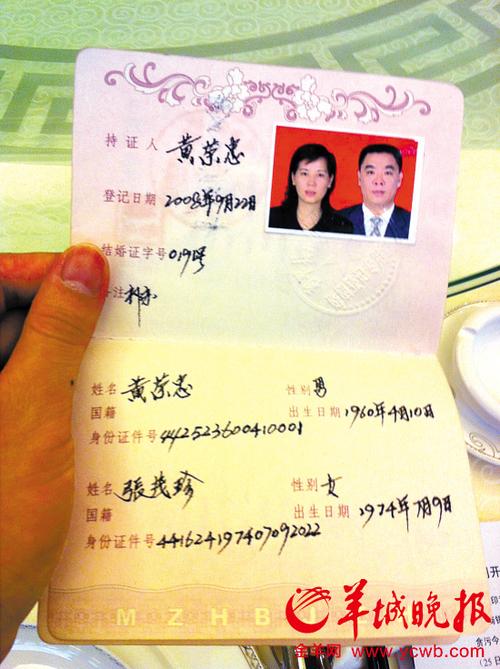 持证人 黄荣忠
登记日期 2008年9月22日
结婚证字号 019号
备注
姓名 黄荣忠 性别 男
国籍 出生日期 1960年4月10日
身份证件号 442523600410001
姓名 張茂珍 性别 女
国籍 出生日期 1974年7月9日
身份证件号 441624197407092022
MZHB
羊城晚报
金羊网 www.ycwb.com